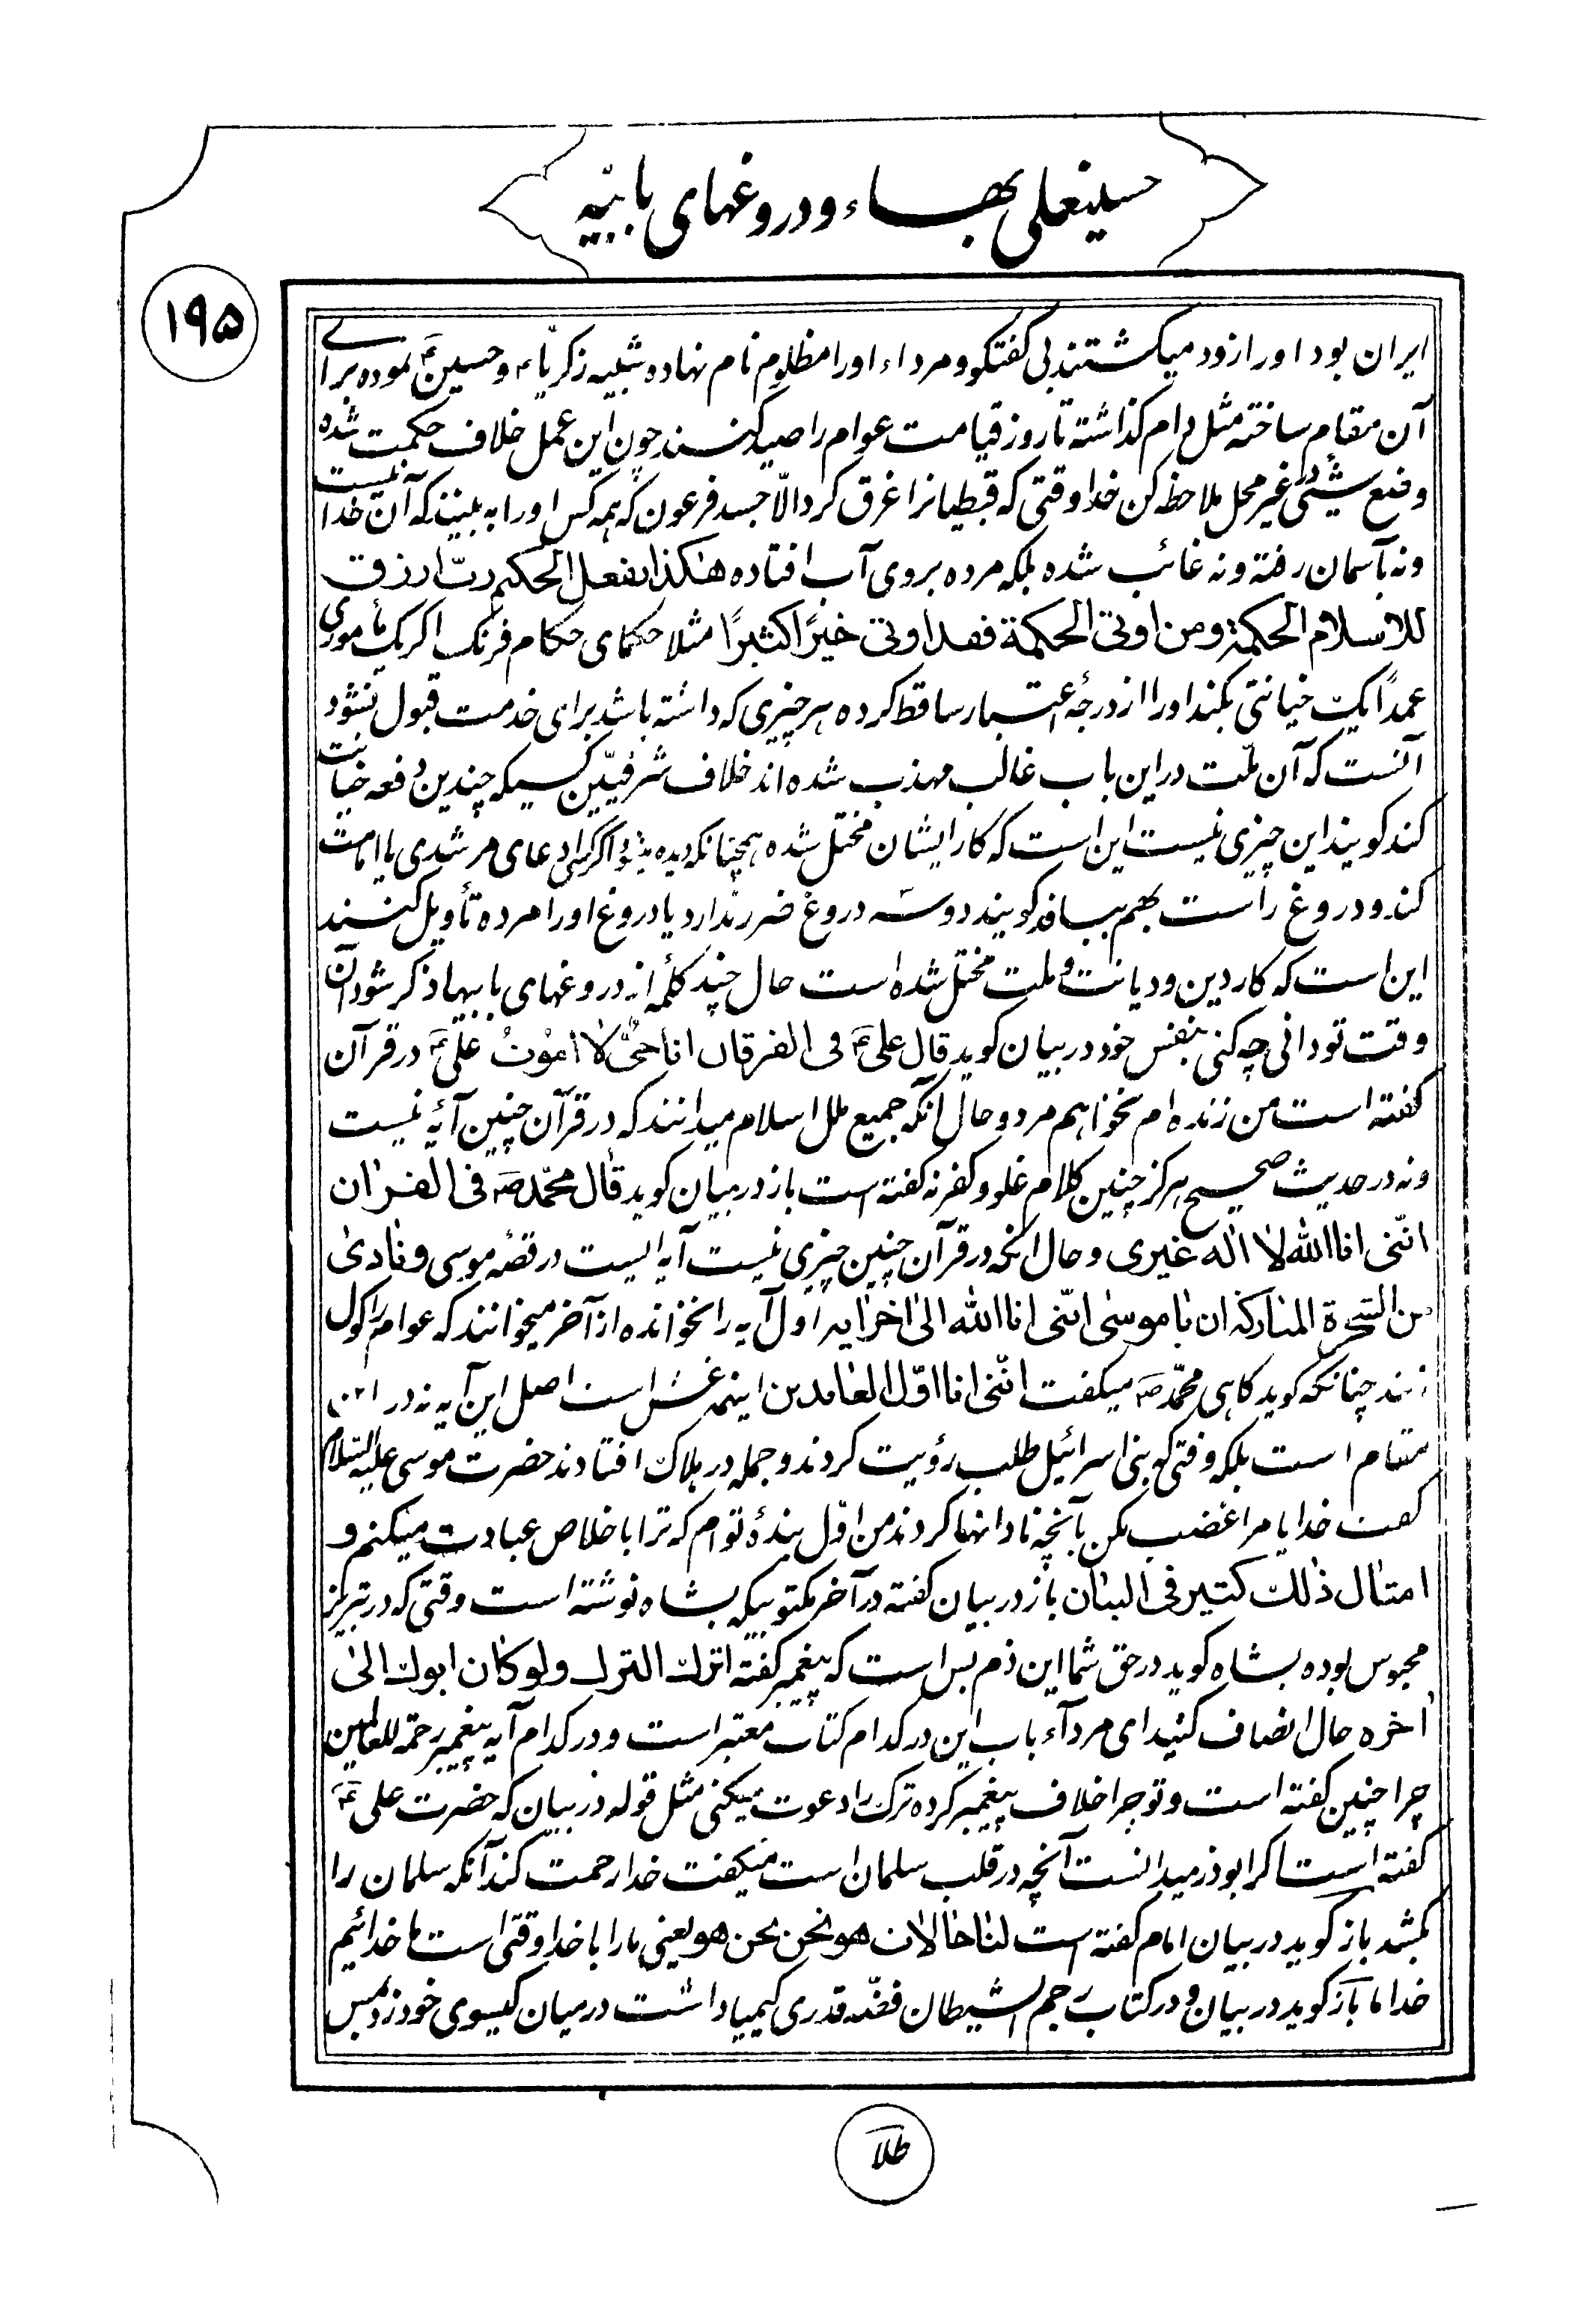 حسینعلی بهاء و دروغهای بابیّه
۱۹۵
ایران بود او را زود میکشتند بی گفتگو و مرداء او را مظلوم نام نهاده شبیه زکریّا و حسین نموده برای
آن مقام ساخته مثل دام کذاشته تا روز قیامت عوام را صید کنند چون این عمل خلاف حکمت شده
وضع شیئی غیر محل ملاحظه کن خدا وقتی که قبطیانرا غرق کرد الّا جسد فرعون که همه کس او را به بینند که آن خدا نیست
و نه بآسمان رفته و نه غائب شده بلکه مرده بروی آب افتاده هکذا یفعل الحکیم ربّ ارزق
للاسلام الحکمة و من اوتی الحکمة فقد اوتی خیرًا کثیرًا مثلا حکمای حکام فرنک اکر یک مأموری
عمدًا یک خیانتی بکند او را از درجهٔ اعتبار ساقط کرده هر چیزی که داشته باشد برای خدمت قبول نشود
آنست که آن ملّت در این باب غالب مهذب شده اند خلاف شرقیّین کسیکه چندین دفعه خیانت
کند کویند این چیزی نیست این است که کار ایشان مختل شده همچنانکه دیده میشود اکر کسی ادعای مرشدی یا امامت
کند و دروغ راست بهم ببافد کویند دو سه دروغ ضرر ندارد یا دروغ او را مرده تأویل کنند
این است که کار دین و دیانت و ملت مختل شده است حال چند کلمهٔ از دروغهای بابیها ذکر شود آن
وقت تو دانی چه کنی بنفس خود در بیان کوید قال علی فی الفرقان انا حیٌّ لا اموتُ علی در قرآن
کفته است من زنده ام نخواهم مرد و حال آنکه جمیع ملل اسلام میدانند که در قرآن چنین آیهٔ نیست
و نه در حدیث صحیح هرکز چنین کلام غلو و کفر نه کفته است باز در بیان کوید قال محمّد فی القران
انّنی انا الله لا اله غیری و حال انکه در قرآن چنین چیزی نیست آیه ایست در قصّهٔ موسی و نادی
من الشجرة المبارکة ان یا موسی انّنی انا الله الی اخر ایه اول آیه را نخوانده از آخر میخوانند که عوام را کول
زنند چنانکه کوید کاهی محمّد میکفت انّنی انا اوّل العابدین اینهم غش است اصل این آیه نه در این
مقام است بلکه وقتی که بنی اسرائیل طلب رؤیت کردند و جمله در هلاک افتادند حضرت موسی علیه السّلام
کفت خدایا مرا غضب مکن بآنچه نادانها کردند من اوّل بندهٔ توام که ترا باخلاص عبادت میکنم و
امثال ذلک کثیر فی البیان باز در بیان کفته در آخر مکتوبیکه بشاه نوشته است وقتی که در تبریز
محبوس بوده بشاه کوید در حق شما این ذم بس است که پیغمبر کفته اترک الترک ولو کان ابوک الی
اخره حال انصاف کنید ای مرداء باب این در کدام کتاب معتبر است و در کدام آیه پیغمبر رحمة للعالمین
چرا چنین کفته است و تو چرا خلاف پیغمبر کرده ترک را دعوت میکنی مثل قوله در بیان که حضرت علی
کفته است اکر ابوذر میدانست آنچه در قلب سلمان است میکفت خدا رحمت کند آنکه سلمان را
بکشد باز کوید در بیان امام کفته است لنا حالات هو نحن نحن هو یعنی ما را با خدا وقتی است ما خدائیم
خدا ما باز کوید در بیان و در کتاب رجم الشیطان فضّه قدری کیمیا داشت در میان کیسوی خود زد بمس
طلا